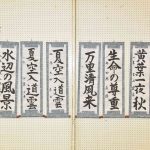 黄葉一夜秋
生命の尊重
万里清風来
夏空入道雲
夏空入道雲
水辺の風景